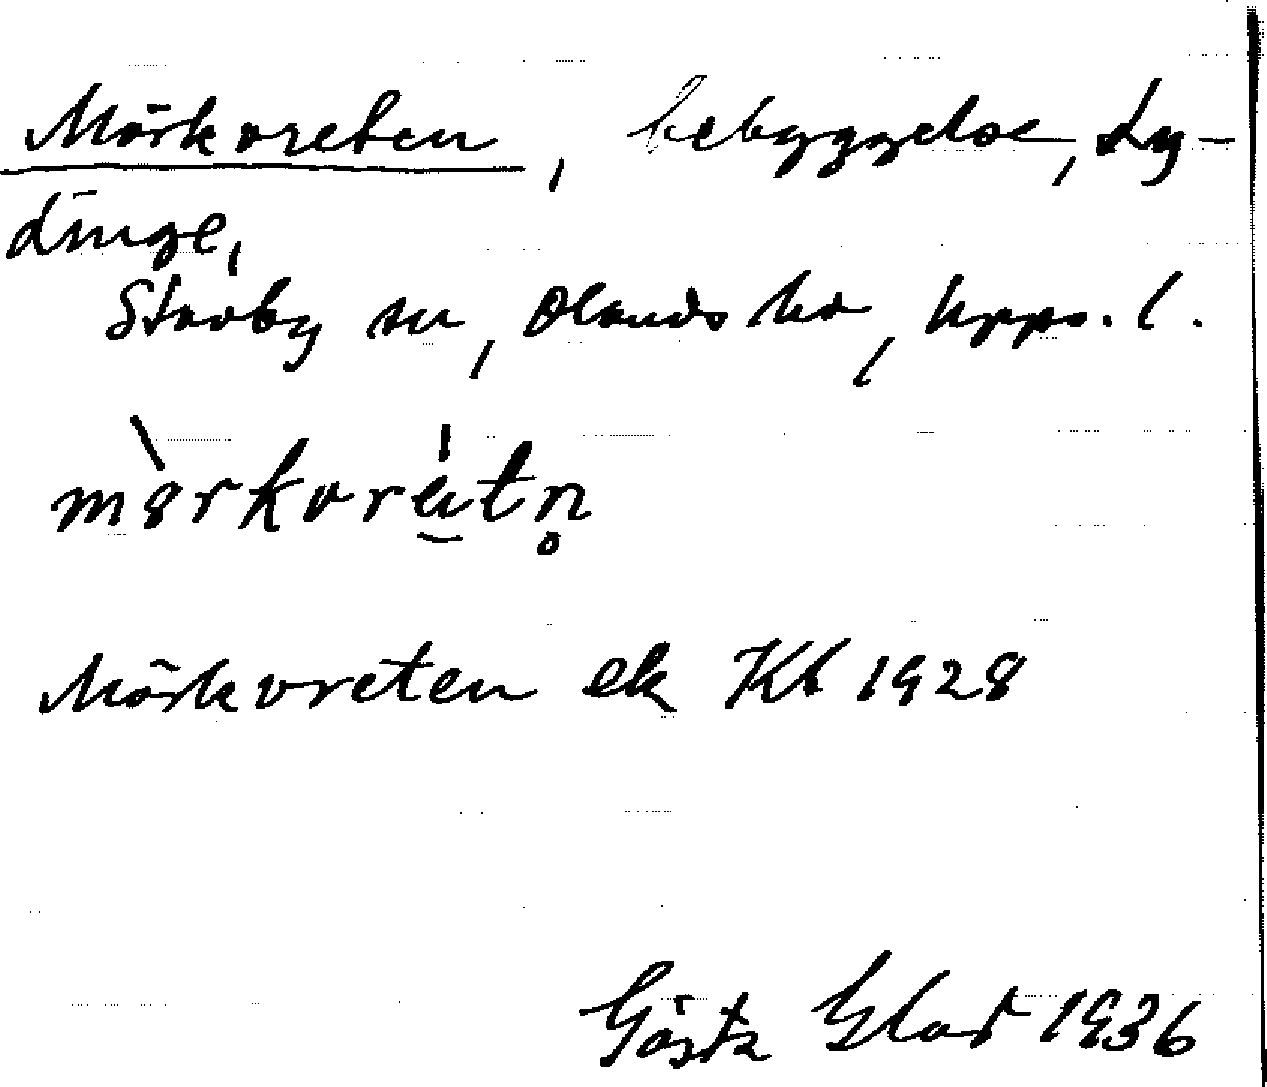 Mörkvreten, bebyggelse, Ly-
dinge,
Stavby sn, Olands hd, Upps. l.
Mörkvreten ek Kb 1928
Gösta Glad 1936